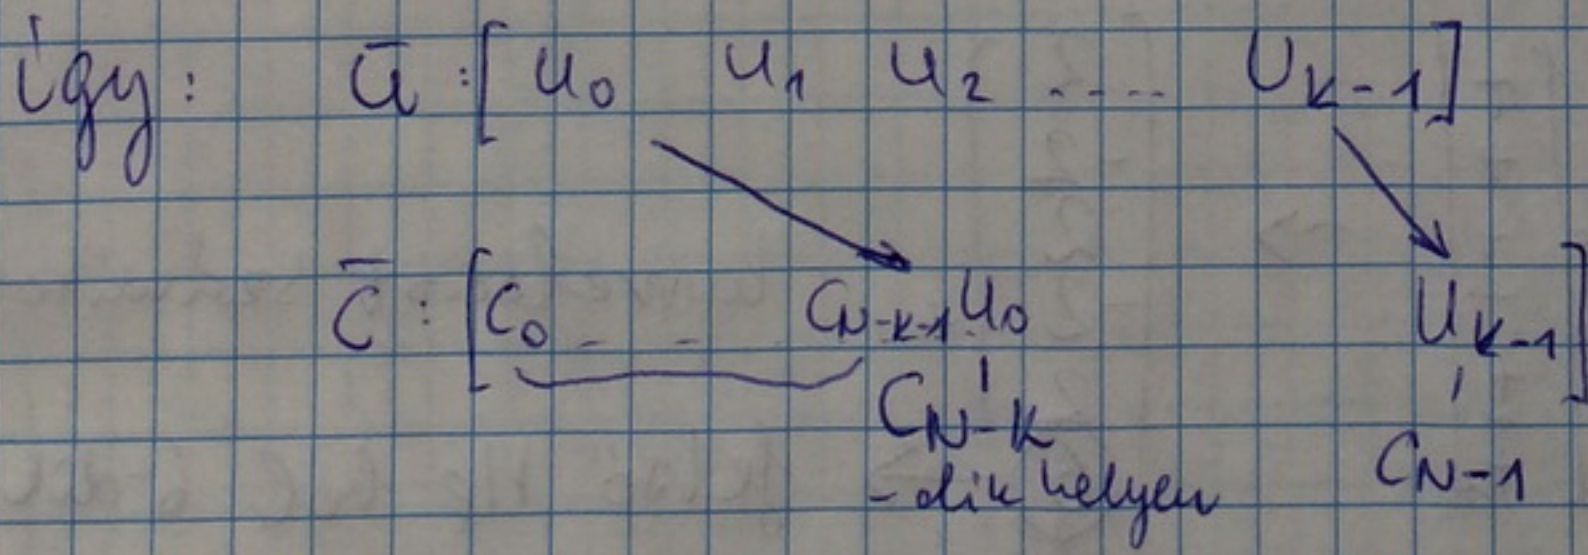 így: ū : [ u₀ u₁ u₂ .... U_{K-1} ]
C̄ : [ C₀ _ _ _ C_{N-K-1} U₀ U_{K-1} ]
C_{N-K}
-dik helyen C_{N-1}